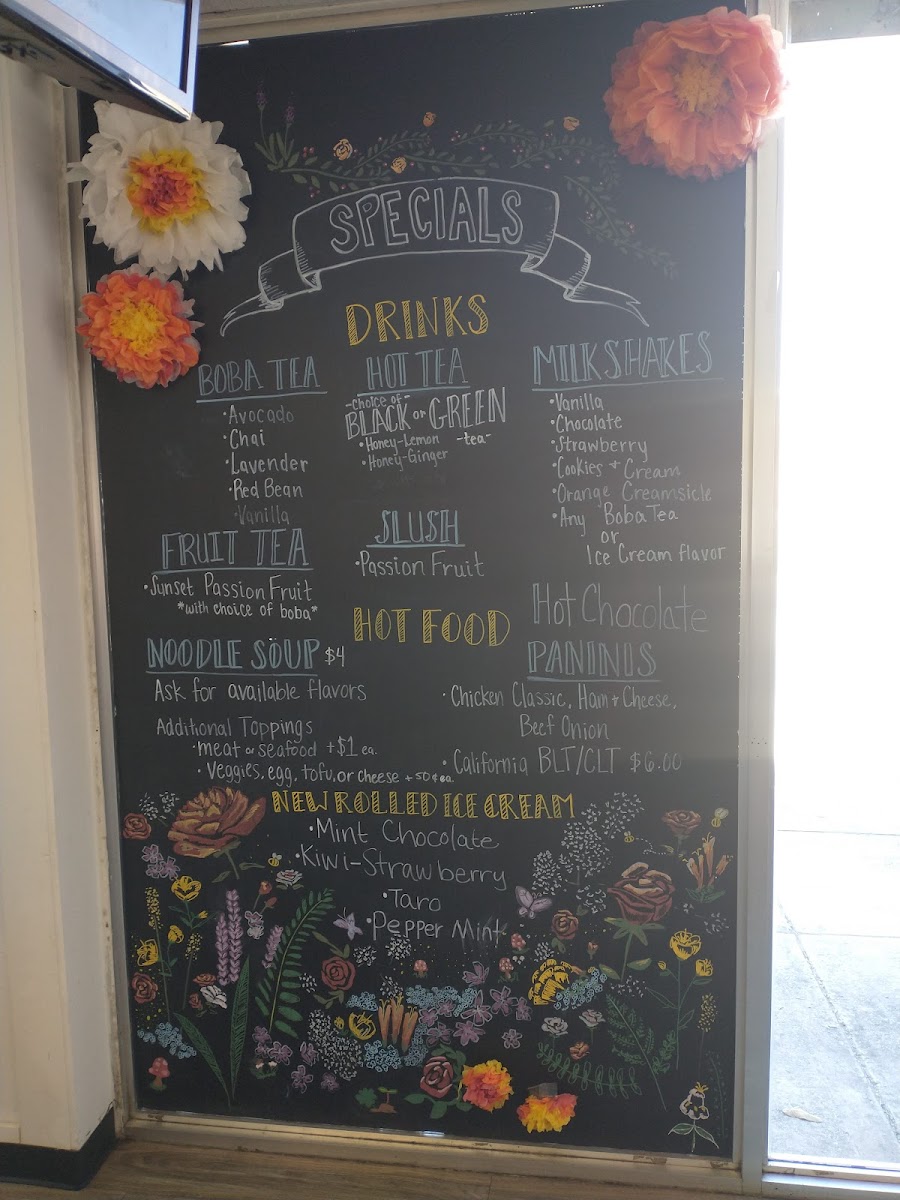 SPECIALS
DRINKS
BOBA TEA
•Avocado
•Chai
•Lavender
•Red Bean
•Vanilla
HOT TEA
-choice of-
BLACK or GREEN
-tea-
•Honey-Lemon
•Honey-Ginger
MILKSHAKES
•Vanilla
•Chocolate
•Strawberry
•Cookies + Cream
•Orange Creamsicle
•Any Boba Tea
or
Ice Cream flavor
FRUIT TEA
•Sunset Passion Fruit
*with choice of boba*
SLUSH
•Passion Fruit
Hot Chocolate
HOT FOOD
NOODLE SOUP $4
Ask for available flavors
Additional Toppings
•meat or seafood +$1 ea.
•Veggies, egg, tofu, or cheese +50¢ ea.
PANINIS
•Chicken Classic, Ham + Cheese,
Beef Onion
•California BLT/CLT $6.00
NEW ROLLED ICE CREAM
•Mint Chocolate
•Kiwi-Strawberry
•Taro
•Pepper Mint